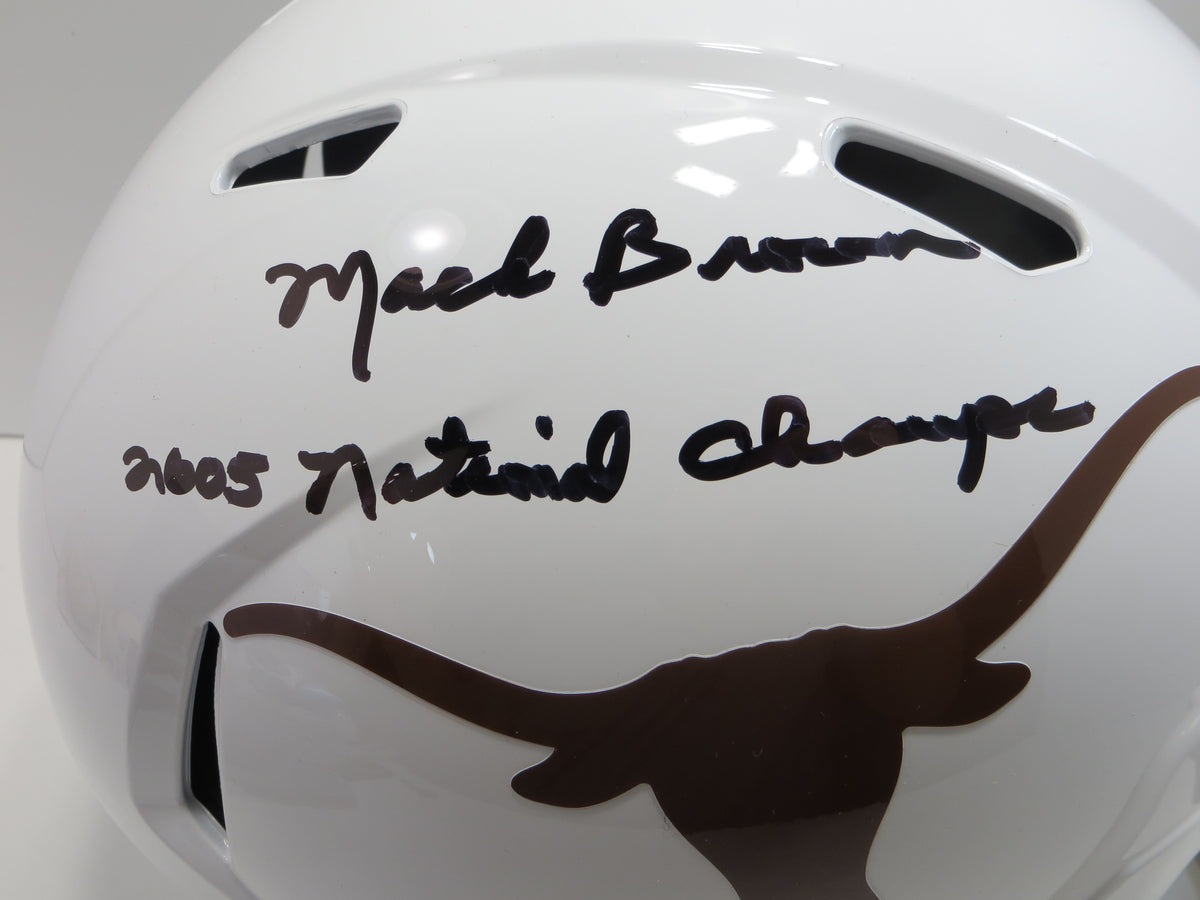 Mack Brown
2005 National Champs